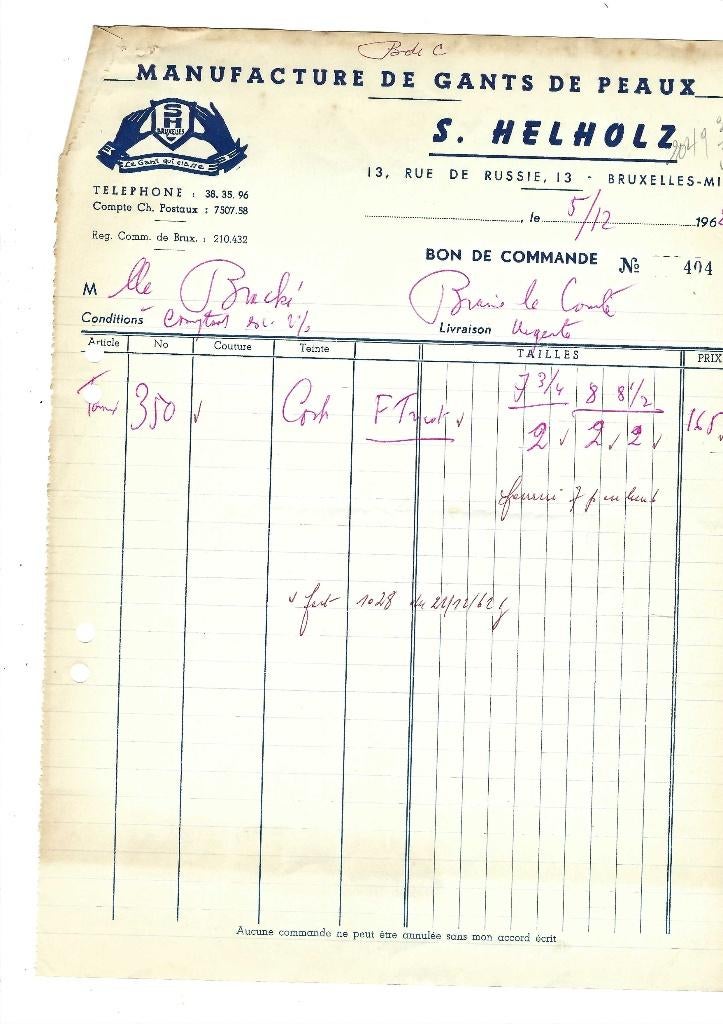 B de C
MANUFACTURE DE GANTS DE PEAUX
SH
BRUXELLES
Le Gant qui classe
S. HELHOLZ
2049
13, RUE DE RUSSIE, 13 - BRUXELLES-MI
TELEPHONE : 38.35.96
Compte Ch. Postaux : 7507.58
Reg. Comm. de Brux. : 210.432
, le 5/12 196
BON DE COMMANDE No 404
M lle Braché Braine le Comte
Conditions Comptant esc. 2% Livraison Urgente
Article No Couture Teinte TAILLES PRIX
350 Cork F Tricot 7 3/4 8 8 1/2 165
2 2 2
fourni 7
fact 1028 du 22/12/62
Aucune commande ne peut être annulée sans mon accord écrit